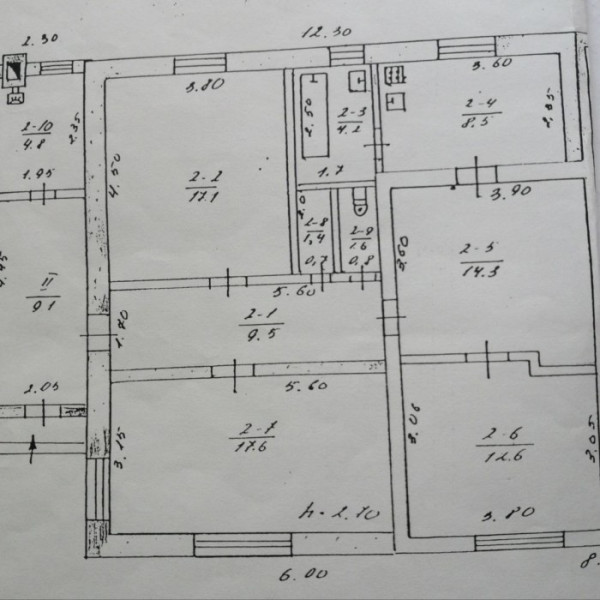 2.30
12.30
3.80
3.60
2-10
4.8
2.35
2.50
2-3
4.2
2-4
8.5
2.35
1.95
4.50
2-2
17.1
1.7
3.90
2-8
1,4
2-9
1.6
0,7
0,8
2-5
14.3
II
9.1
5.60
2-1
9.5
1.70
2.05
5.60
3.15
2-7
17.6
3.06
2-6
12.6
3.05
h = 2.70
3.80
6.00
8.